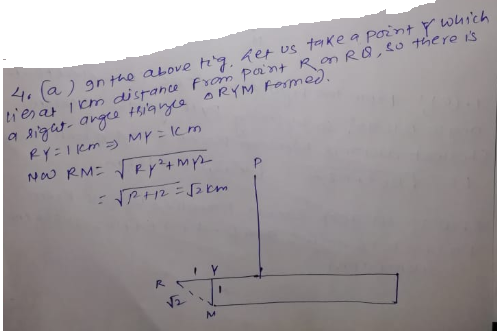 4. (a) In the above fig. Let us take a point Y which
lies at 1 km distance from point R on RQ, so there is
a right-angle triangle △RYM formed.
RY = 1 km ⇒ MY = 1 km
Now RM = √RY²+MY²
= √1²+12 = √2 km
P
R 1 Y
√2 1
M